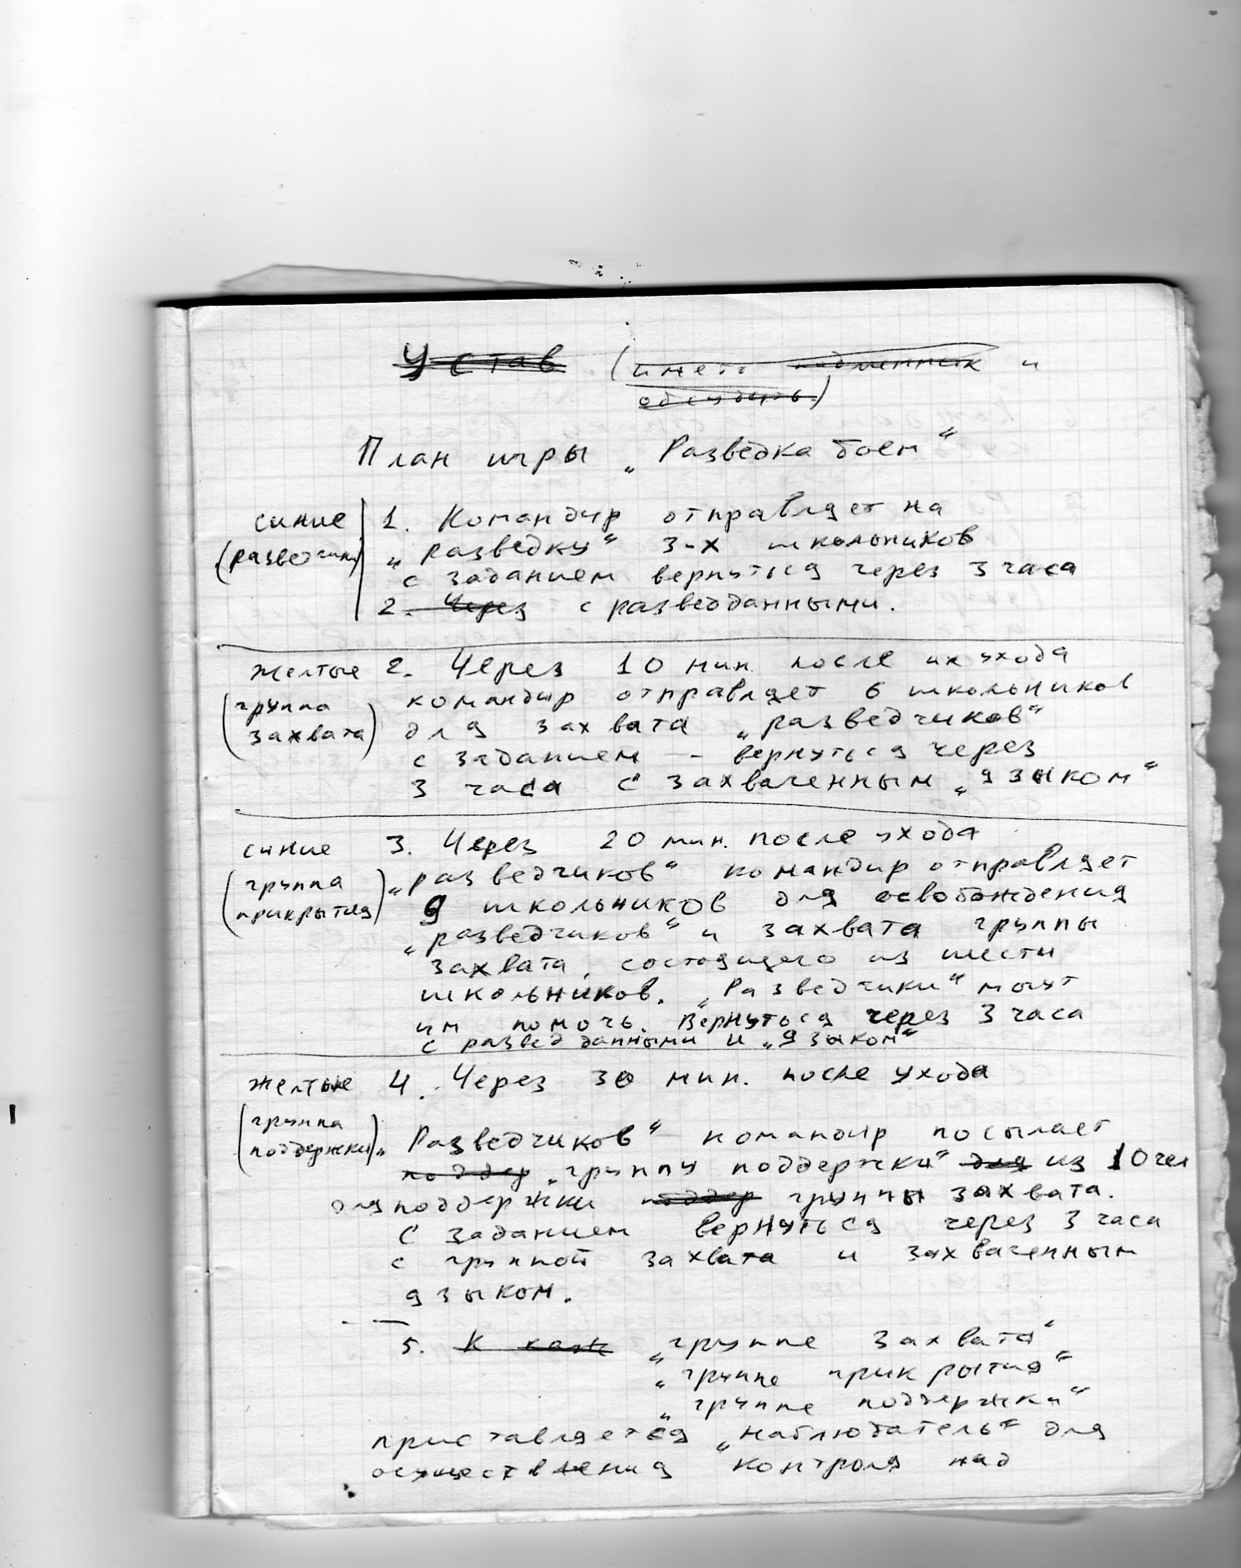 Устав (иметь и
обсудить)
План игры „Разведка боем“
синие 1. Командир отправляет на
(разведчики) „разведку“ 3-х школьников
с заданием вернуться через 3 часа
2. Через с разведданными.
желтые 2. Через 10 мин. после их ухода
(группа командир отправляет 6 школьников
захвата) для захвата „разведчиков“
с заданием – вернуться через
3 часа с захваченным „языком“
синие 3. Через 20 мин. после ухода
(группа „разведчиков“ командир отправляет
прикрытия) 9 школьников для освобождения
„разведчиков“ и захвата группы
захвата, состоящего из шести
школьников. „Разведчики“ могут
им помочь. Вернуться через 3 часа
с развед данными и „языком“
желтые 4. Через 30 мин. после ухода
(группа
поддержки) „Разведчиков“ командир посылает
поддер „группу поддержки“ для из 10 чел
для поддержки поддер группы захвата.
С заданием вернуться через 3 часа
с группой захвата и захваченным
языком.
5. К кажд „группе захвата“
„группе прикрытия“
„группе поддержки“
приставляется „наблюдатель“ для
осуществления контроля над